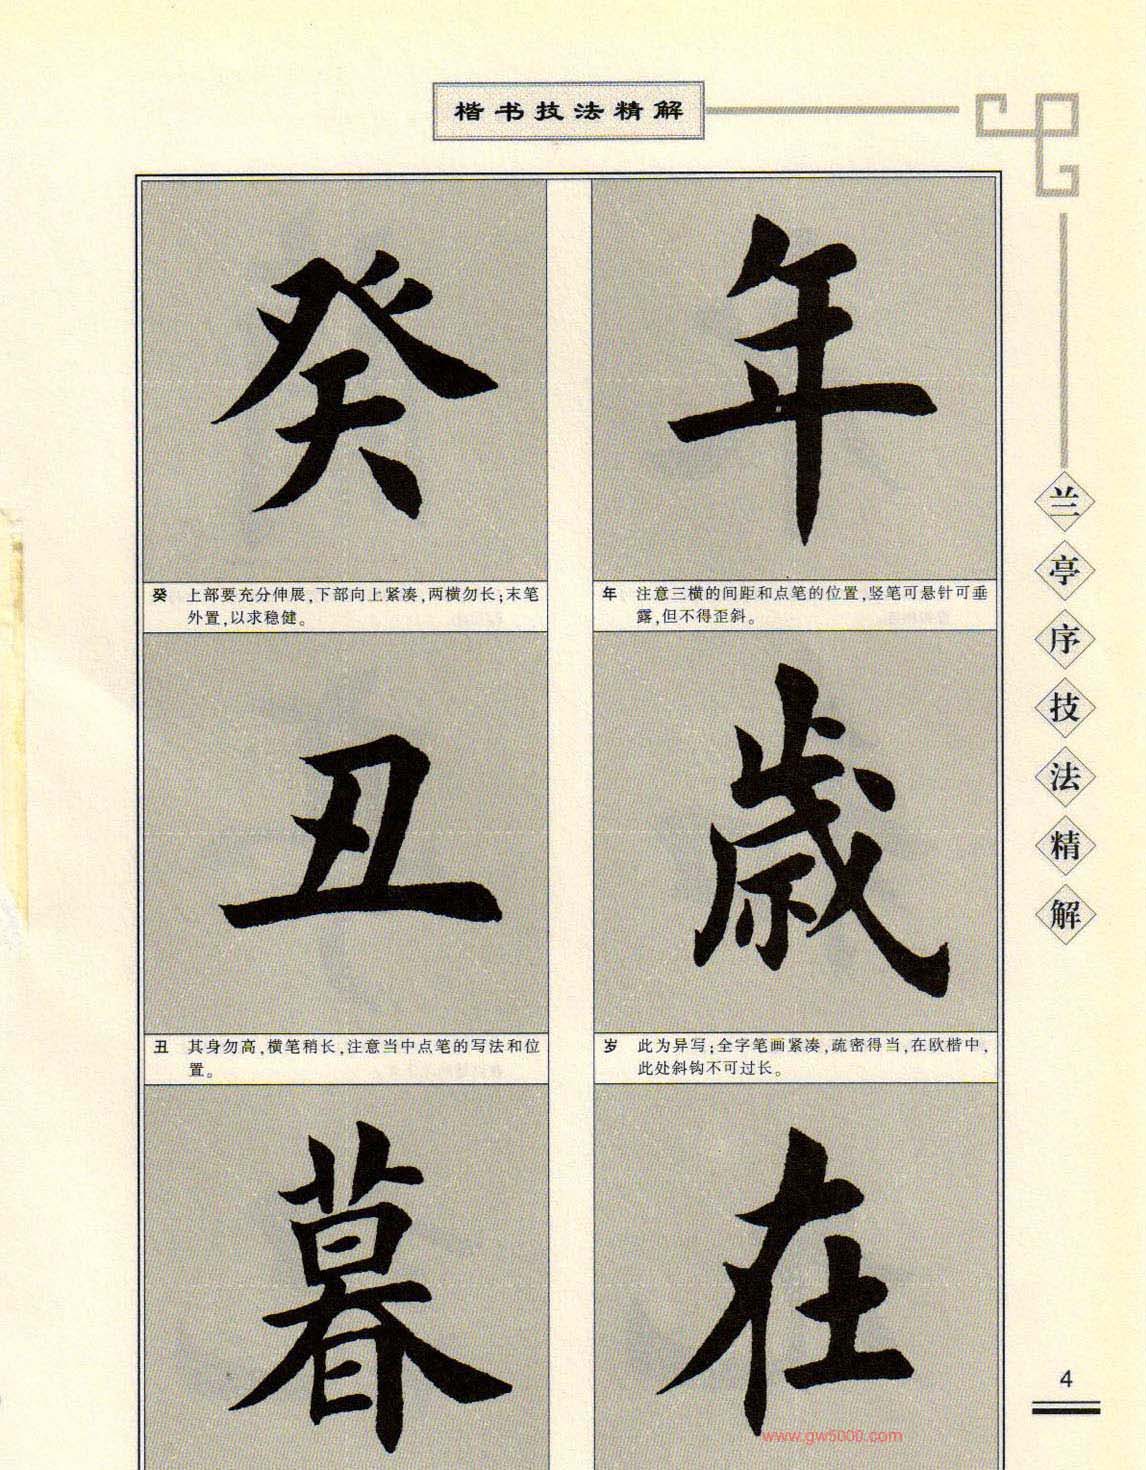 楷书技法精解
癸
年
癸 上部要充分伸展,下部向上紧凑,两横勿长;末笔
外置,以求稳健。
年 注意三横的间距和点笔的位置,竖笔可悬针可垂
露,但不得歪斜。
丑
歳
丑 其身勿高,横笔稍长,注意当中点笔的写法和位
置。
岁 此为异写;全字笔画紧凑,疏密得当,在欧楷中,
此处斜钩不可过长。
暮
在
兰亭序技法精解
4
www.gw5000.com